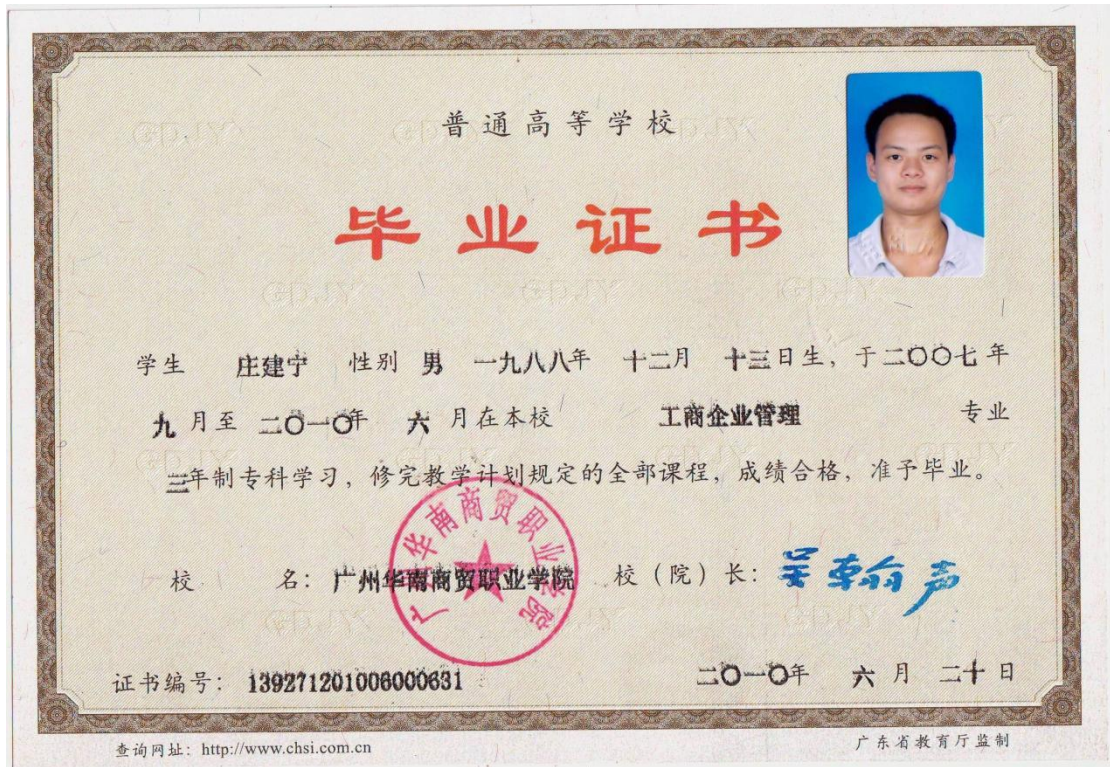 普通高等学校
毕业证书
学生 庄建宁 性别 男 一九八八年 十二月 十三日生，于二〇〇七年
九月至 二〇一〇年 六 月在本校 工商企业管理 专业
三年制专科学习，修完教学计划规定的全部课程，成绩合格，准予毕业。
校 名：广州华南商贸职业学院 校（院）长：吴翰声
广州华南商贸职业学院
证书编号：139271201006000631 二〇一〇年 六 月 二十 日
查询网址：http://www.chsi.com.cn 广东省教育厅监制